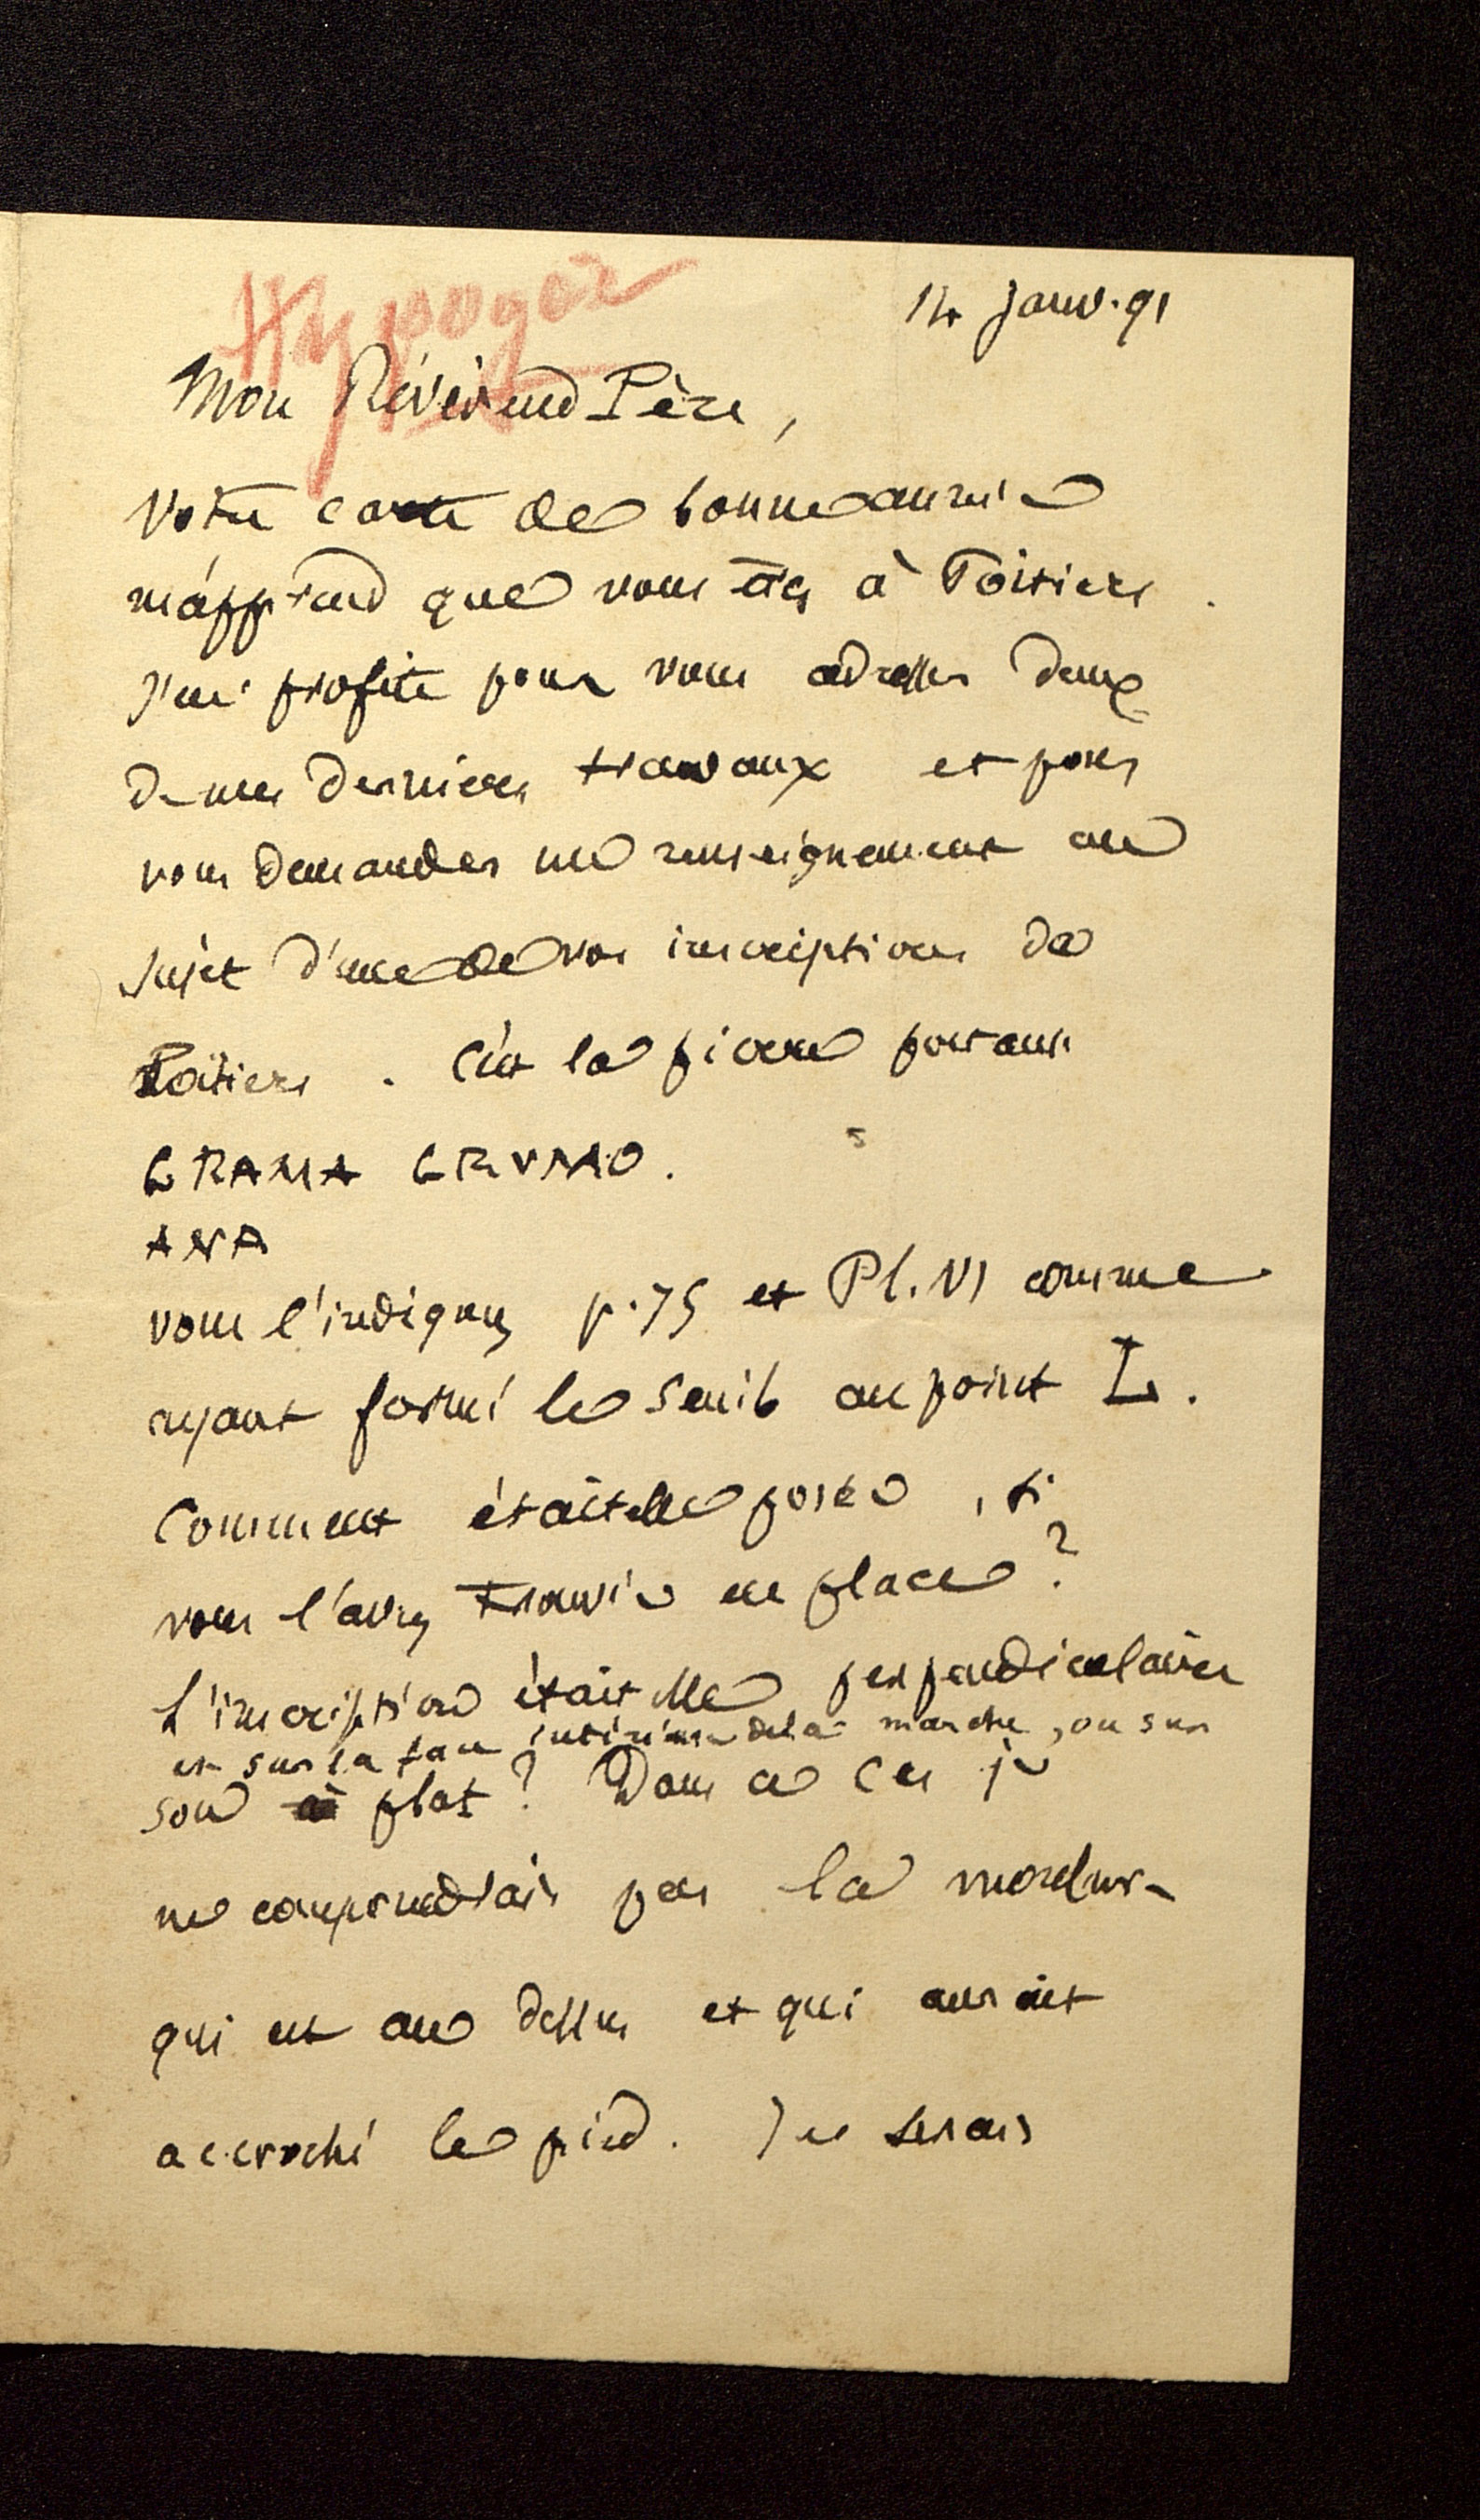 Hypogée
14 janv. 91
Mon Révérend Père,
Votre carte de bonne année
m'apprend que vous êtes à Poitiers.
J'en profite pour vous adresser deux
de mes derniers travaux et pour
vous demander un renseignement au
sujet d'une de vos inscriptions de
Poitiers. C'est la pierre portant
GRAMA GRVMO.
ANA
vous l'indiquez p. 75 et Pl. VI comme
ayant formé le seuil au point L.
Comment était elle posée, si
vous l'avez trouvée en place?
L'inscription était elle perpendiculaire
et sur la face intérieure de la marche, ou sur
son plat? Dans ce cas je
ne comprendrais pas la moulure
qui est au dessus et qui aurait
accroché le pied. Je serais